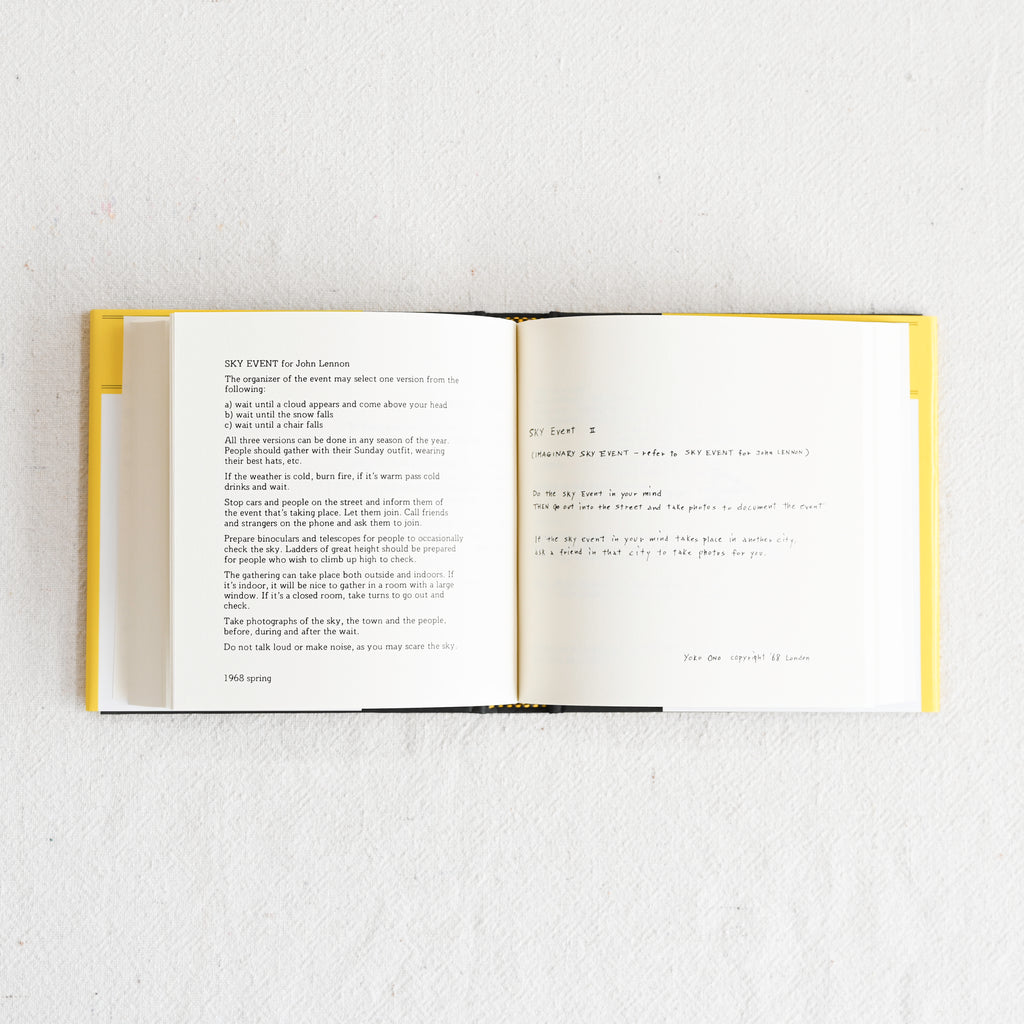 SKY EVENT for John Lennon
The organizer of the event may select one version from the
following:
a) wait until a cloud appears and come above your head
b) wait until the snow falls
c) wait until a chair falls
All three versions can be done in any season of the year.
People should gather with their Sunday outfit, wearing
their best hats, etc.
If the weather is cold, burn fire, if it's warm pass cold
drinks and wait.
Stop cars and people on the street and inform them of
the event that's taking place. Let them join. Call friends
and strangers on the phone and ask them to join.
Prepare binoculars and telescopes for people to occasionally
check the sky. Ladders of great height should be prepared
for people who wish to climb up high to check.
The gathering can take place both outside and indoors. If
it's indoor, it will be nice to gather in a room with a large
window. If it's a closed room, take turns to go out and
check.
Take photographs of the sky, the town and the people,
before, during and after the wait.
Do not talk loud or make noise, as you may scare the sky.
1968 spring
SKY Event II
(IMAGINARY SKY EVENT - refer to SKY EVENT for John LENNON)
Do the sky Event in your mind
THEN go out into the street and take photos to document the event
If the sky event in your mind takes place in another city,
ask a friend in that city to take photos for you.
YOKO ONO copyright '68 London